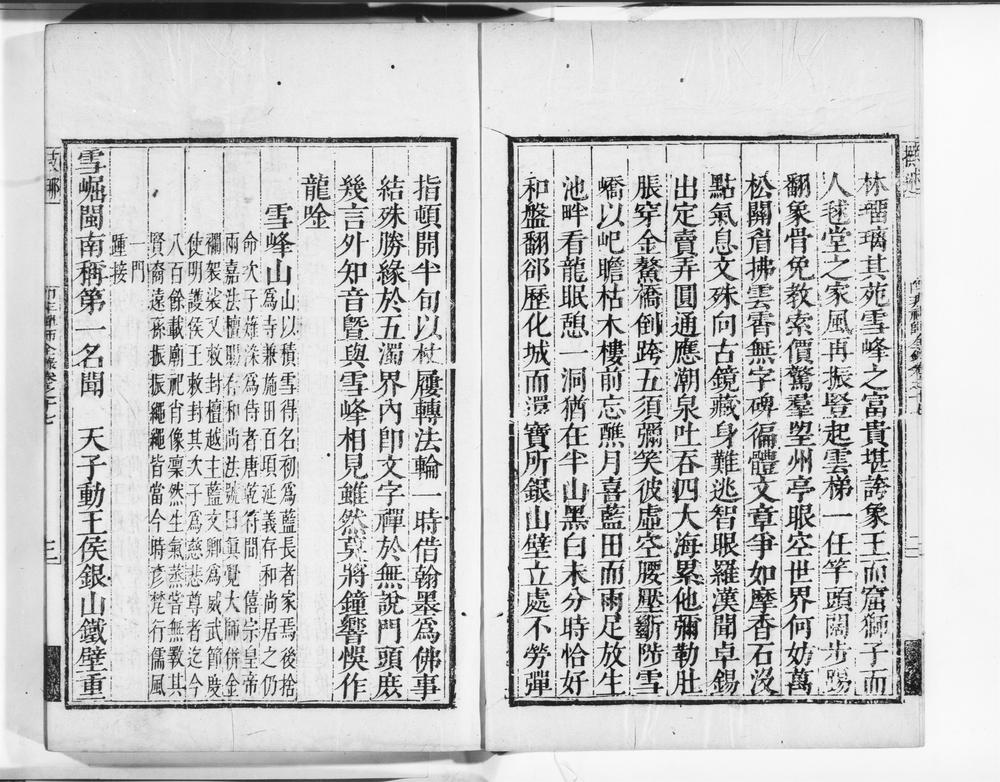 林瑠璃其苑雪峰之富貴堪誇象王而窟獅子而
人毬堂之家風再振豎起雲梯一任竿頭闊步踢
翻象骨免教索價驚羣望州亭眼空世界何妨萬
松關眉拂雲霄無字碑徧體文章爭如摩香石沒
點氣息文殊向古鏡藏身難逃智眼羅漢聞卓錫
出定賣弄圓通應潮泉吐吞四大海累他彌勒肚
脹穿金鰲橋倒跨五須彌笑彼虛空腰壓斷陟雪
嶠以屺瞻枯木樓前忘醮月喜藍田而雨足放生
池畔看龍眠憩一洞猶在半山黑白未分時恰好
和盤翻郤歷化城而還寶所銀山壁立處不勞彈
指頓開半句以杖屨轉法輪一時借翰墨為佛事
結殊勝緣於五濁界內卽文字禪於無說門頭庶
幾言外知音曁與雪峰相見雖然莫將鐘響悞作
龍唫
雪峰山山以積雪得名初為藍長者家焉後捨
為寺兼施田百頃延義存和尚居之仍
命次子雄涤為侍者唐乾符間 僖宗皇帝
兩嘉法檀賜存和尚法號曰眞覺大師併金
襴袈裟又敕封檀越主藍文卿為威武節度
使明護侯王敕封其次子為慈悲尊者迄今
八百餘載廟祀肖像稟然生氣蒸嘗無斁其
賢裔遠孫振振繩繩皆當今時彥梵行儒風
一門
踵接
雪崛閩南稱第一名聞 天子動王侯銀山鐵壁重